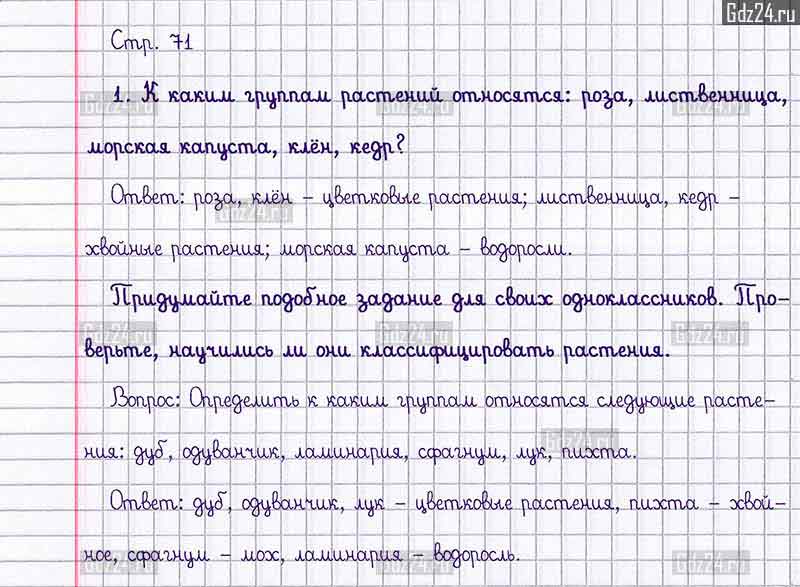 Gdz24.ru
Стр. 71
1. К каким группам растений относятся: роза, лиственница,
морская капуста, клён, кедр?
Ответ: роза, клён – цветковые растения; лиственница, кедр –
хвойные растения; морская капуста – водоросли.
Придумайте подобное задание для своих одноклассников. Про-
верьте, научились ли они классифицировать растения.
Вопрос: Определить к каким группам относятся следующие расте-
ния: дуб, одуванчик, ламинария, сфагнум, лук, пихта.
Ответ: дуб, одуванчик, лук – цветковые растения, пихта – хвой-
ное, сфагнум – мох, ламинария – водоросль.